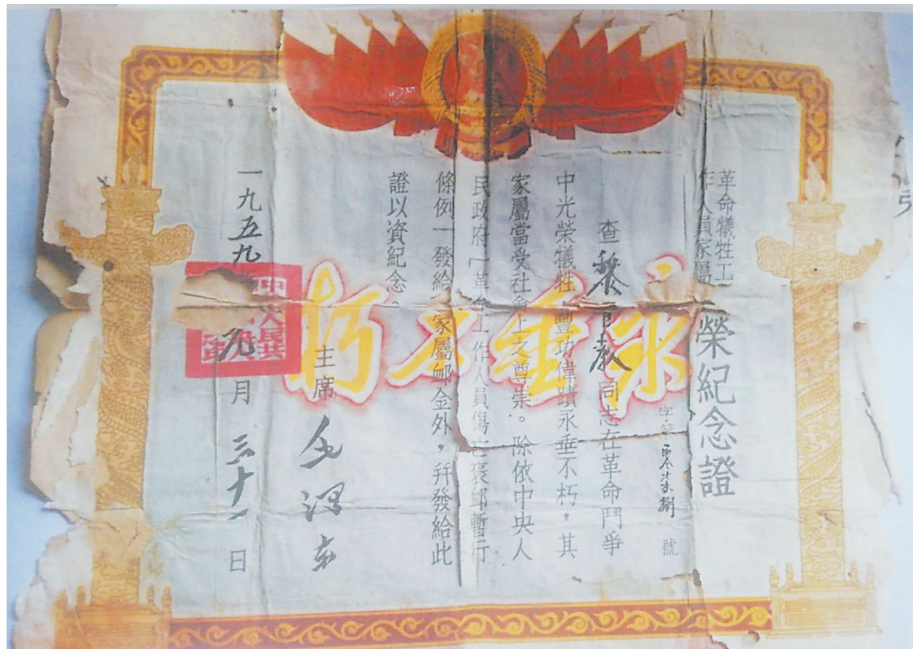 革命犧牲工
作人員家屬
榮紀念證
字第 號
查黎 教同志在革命鬥爭
中光榮犧牲,豐功偉蹟永垂不朽,其
家屬當受社會上之尊崇。除依中央人
民政府「革命工作人員傷亡褒卹暫行
條例」發給 家屬卹金外,幷發給此
證以資紀念。
主席 毛澤東
一九五九 元月三十一日
永垂不朽